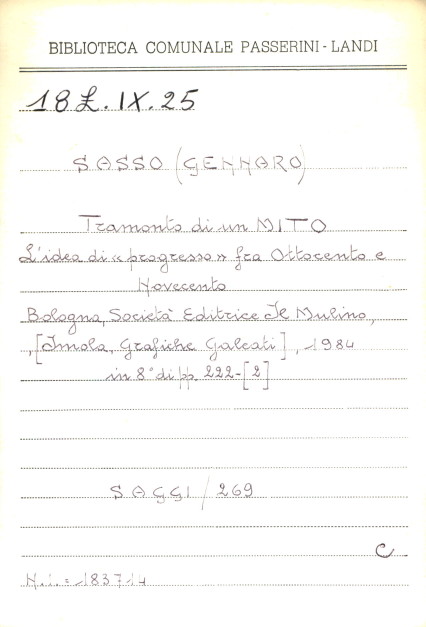 BIBLIOTECA COMUNALE PASSERINI-LANDI
18£.IX.25
SASSO (GENNARO)
Tramonto di un MITO
L'idea di «progresso» fra Ottocento e
Novecento
Bologna, Società Editrice Il Mulino,
,[Imola, Grafiche Galeati], 1984
in 8° di pp. 222-[2]
SAGGI/269
C
N.i.=183714